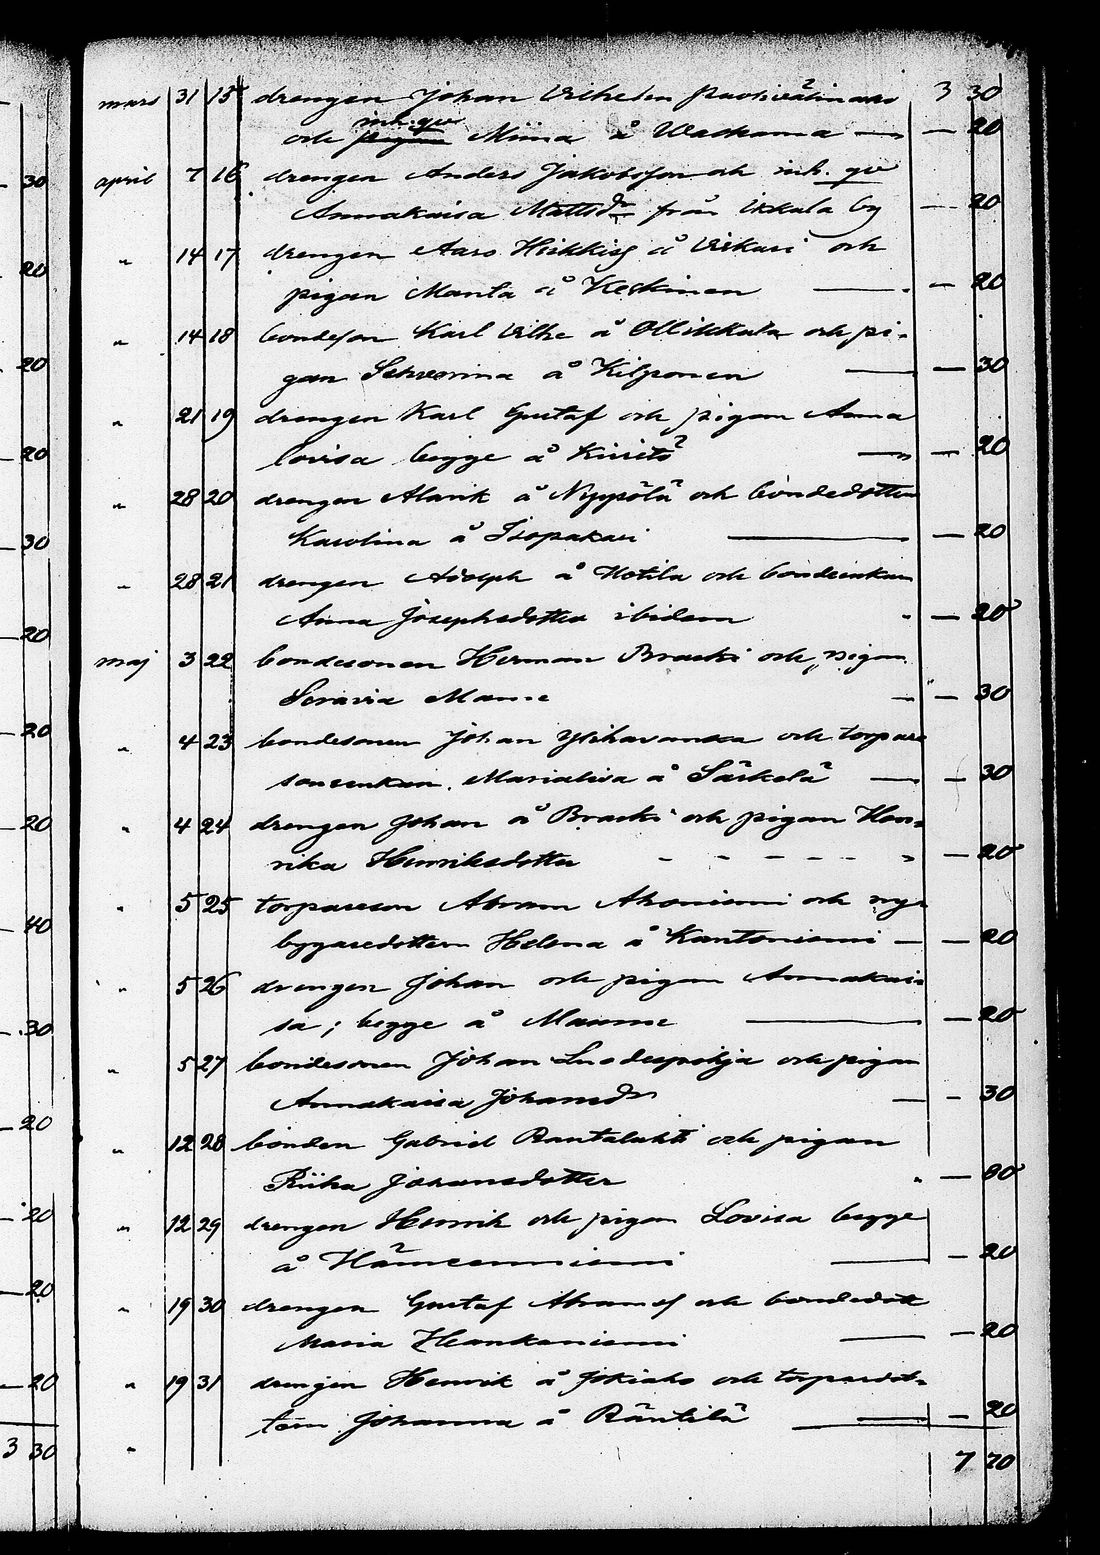 mars 31 15 drengen Johan Vilhelm 3 30
inh. qv
och pigan Miina å Waskama — — 20
april 7 16 drengen Anders Jakobsson och inh. qv
Annakaisa Mattsdr från Ukkola by — 20
" 14 17 drengen Aaro Heikkis å Virkari och
pigan Manta å Keskinen — — 20
" 14 18 bondeson Karl Vilhe å Ollikkala och pi-
gan Severina å Kilponen — — 30
" 21 19 drengen Karl Gustaf och pigan Anna
lovisa begge å Kivistö — — 20
" 28 20 drengen Alarik å Nyppölä och bondedotter
Karolina å Isopakari — — 20
" 28 21 drengen Adolph å Hotila och bondeenkan
Anna Josephsdotter ibidem — 20
maj 3 22 bondesonen Herman Bracki och pigan
Seravia Manne — — 30
" 4 23 bondesonen Johan Ylihavanka och torpare
sonenkan Marialisa å Särkelä — — 30
" 4 24 drengen Johan å Bracki och pigan Hen-
rika Henriksdotter - - - - - - — 20
" 5 25 torpareson Abram Ahoniemi och ny-
bygaredottern Helena å Kantoniemi — — 20
" 5 26 drengen Johan och pigan Annakai-
sa; begge å Maunu — — 20
" 5 27 bondesonen Johan och pigan
Annakaisa Johansdr — — 30
" 12 28 bonden Gabriel Rantalahti och pigan
Riika Johansdotter — 80
" 12 29 drengen Henrik och pigan Lovisa begge
å Hämeenniemi — — 20
" 19 30 drengen Gustaf Abramss och bondedott
Maria Haankaniemi — — 20
" 19 31 drengen Henrik å Jokiaho och torparedot-
tern Johanna å Räntilä — — 20
" 7 70